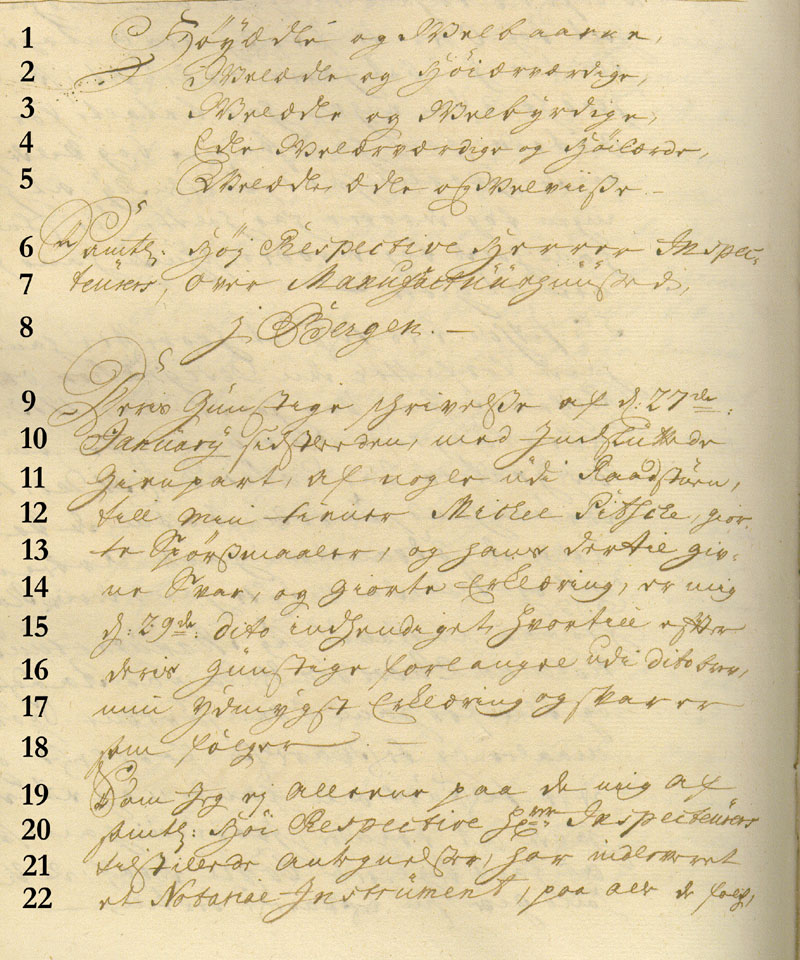 1 Høyædle og Welbaarne,
2 Welædle og Høiærværdige,
3 Welædle og Welbyrdige,
4 Edle Welærværdige og Høilærde,
5 Welædle, ædle og Velviise –
6 Samtl: Høj Respective Herrer Inspec-
7 teürers, over Manufactüür Hüüsed,
8 j Bergen. —
9 Deris Günstige schrivelse af d: 27de:
10 January sidstleeden, med Indsluttede
11 Gienpart, af nogle udi Raadstüen,
12 till min tienner Michel Pitsche, gior-
13 te Spørsmaaler, og hans dertil giv-
14 ne Svar, og giorte Erklæring, er mig
15 d: 29de: dito indhendiget, hvortill efter
16 deris günstige forlangel udi dito brev,
17 min ydmygst Erklæring og svar er
18 som følger
19 Som Jeg ej allene paa de mig af
20 samtl: Høi Respective Hrr: Inspecteürers
21 tilstillede antegnelser, har indleveret
22 et Notarial-Instrüment, paa alle de